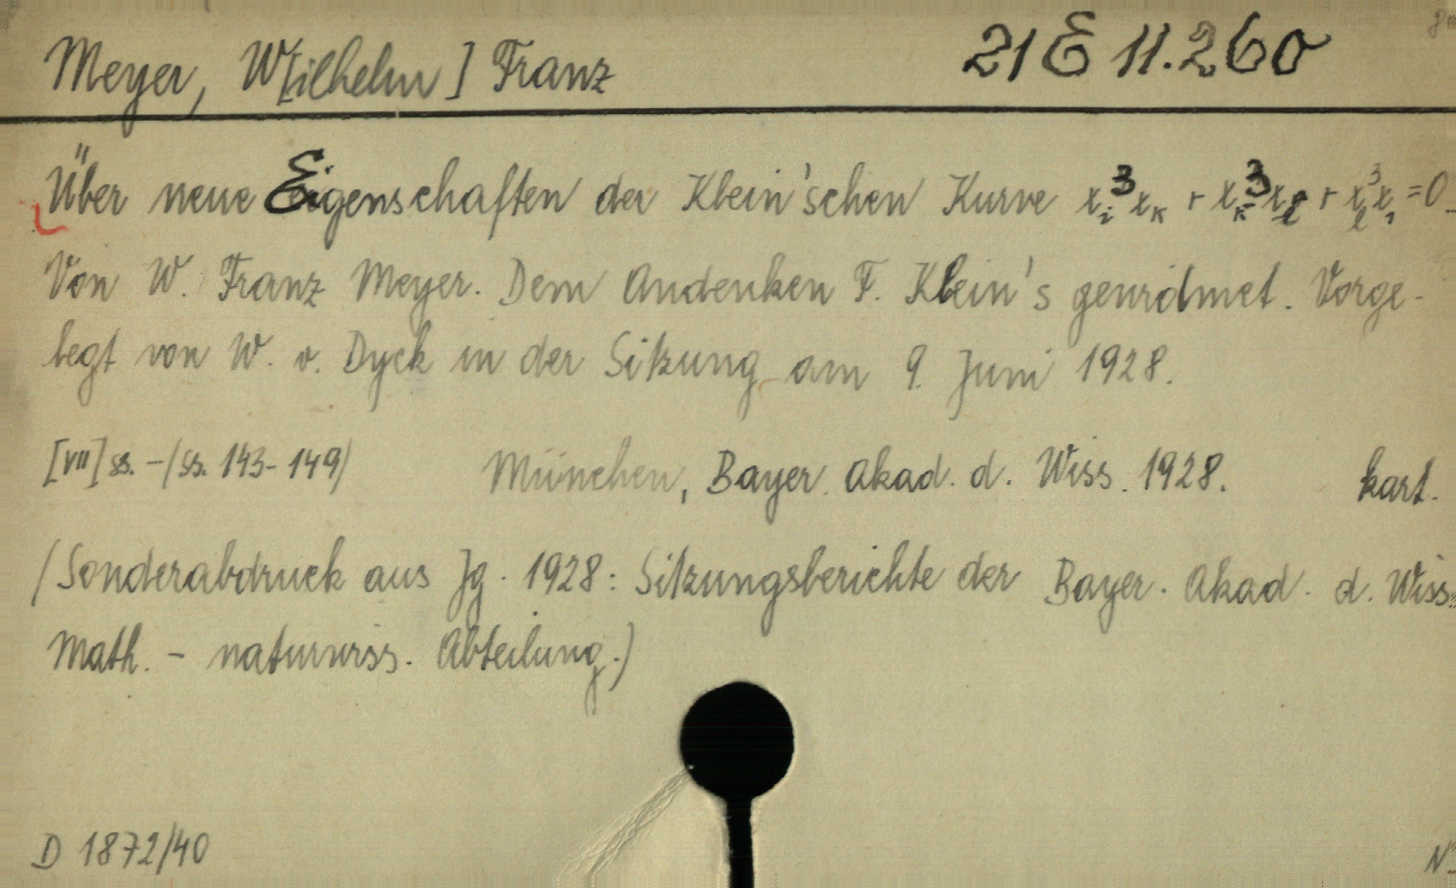 Meyer, W[ilhelm] Franz 21 E 11.260
Über neue Eigenschaften der Klein'schen Kurve x_i^3 x_k + x_k^3 x_l + x_l^3 x_i = 0.
Von W. Franz Meyer. Dem Andenken F. Klein's gewidmet. Vorge-
legt von W. v. Dyck in der Sitzung am 9. Juni 1928.
[VII] ss. - (ss. 143-149) München, Bayer. Akad. d. Wiss. 1928. kart.
(Sonderabdruck aus Jg. 1928: Sitzungsberichte der Bayer. Akad. d. Wiss.
Math. - naturwiss. Abteilung.)
D 1872/40